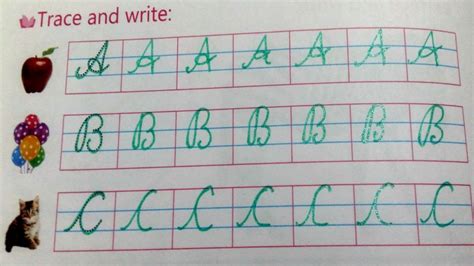 Trace and write:
A A A A A A A
B B B B B B B
C C C C C C C